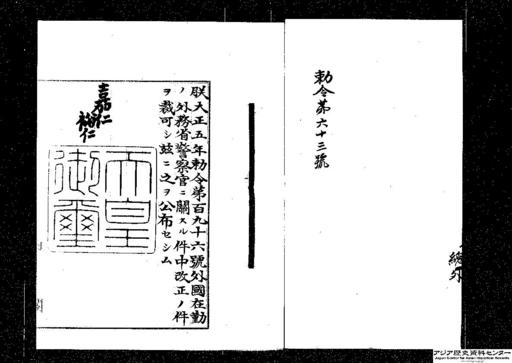 勅令第六十三號
總外
朕大正五年勅令第百九十六號外國在勤
ノ外務省警察官ニ關スル件中改正ノ件
ヲ裁可シ玆ニ之ヲ公布セシム
嘉仁
裕仁
天皇
御璽
アジア歴史資料センター
Japan Center for Asian Historical Records